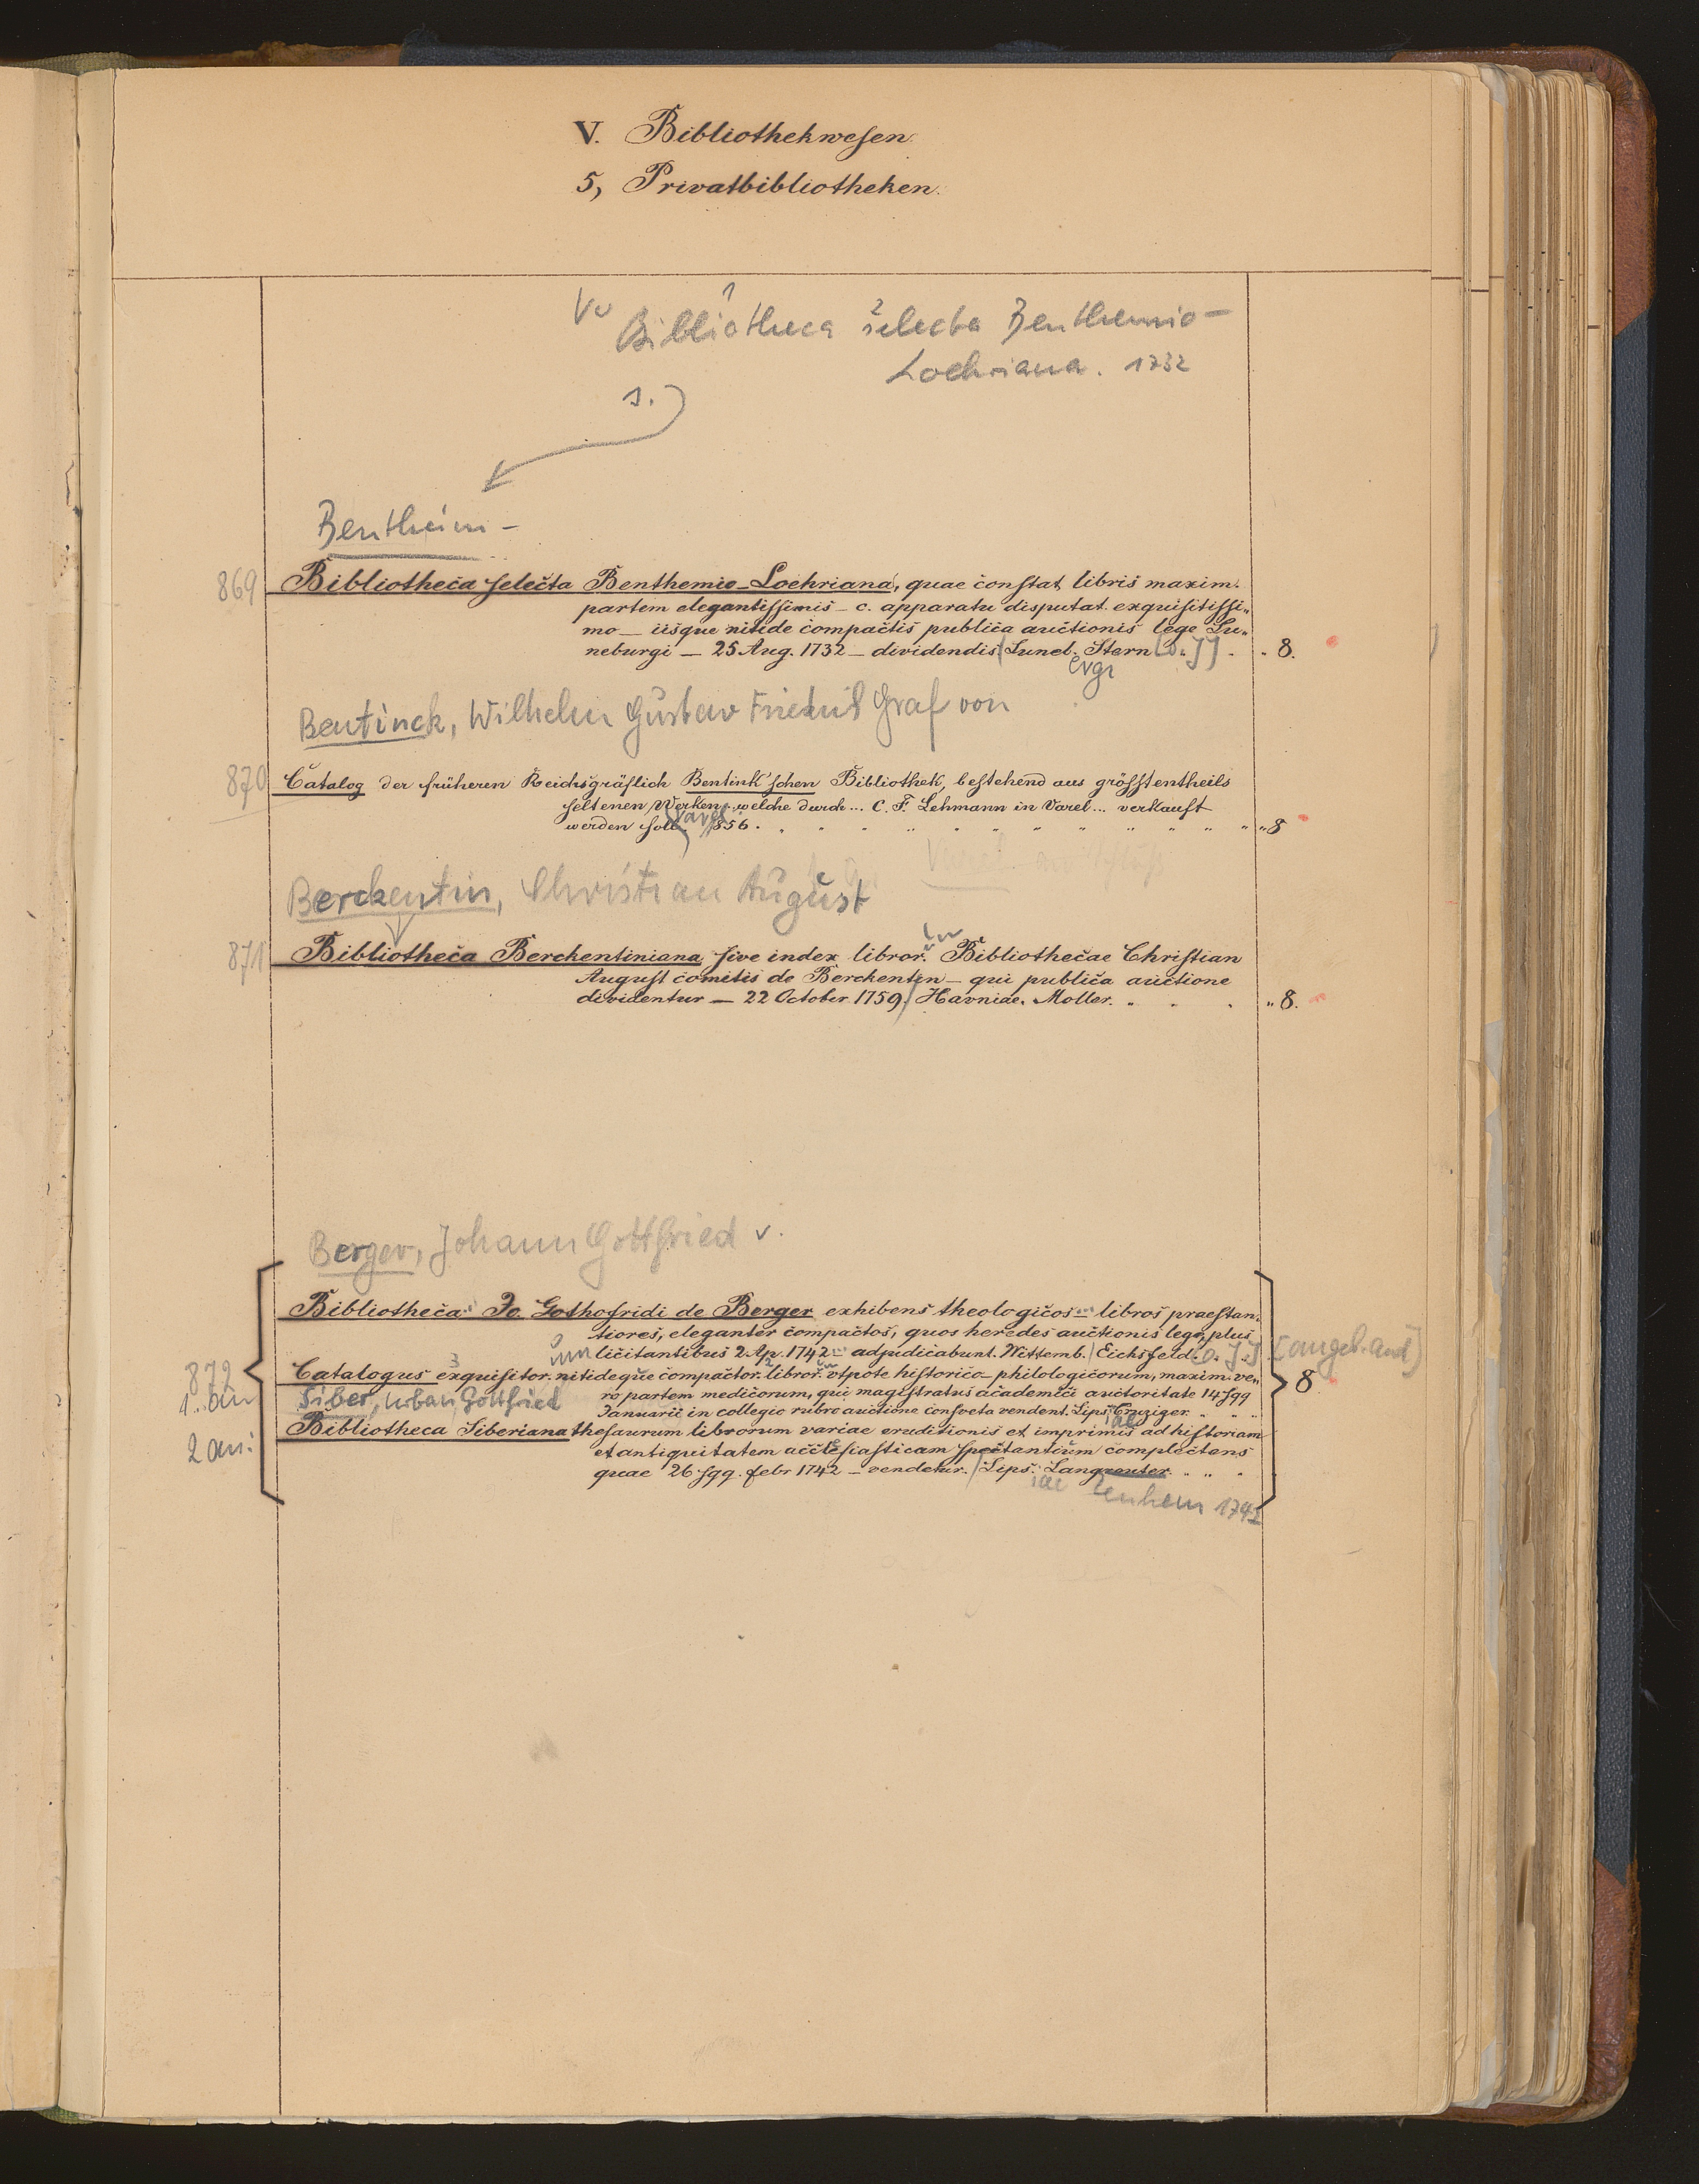 V. Bibliothekwesen.
5, Privatbibliotheken.
Bibliotheca selecta Benthemio-
Lochriana. 1732
s.
Bentheim -
869 Bibliotheca selecta Benthemio-Loehriana, quae constat libris maxim.
partem elegantissimis - c. apparatu disputat. exquisitissi„
mo - iisque nitide compactis publica auctionis lege Lu„
neburgi - 25 Aug. 1732 - dividendis Luneb. Stern [o. J] . . 8.
Bentinck, Wilhelm Gustav Friedrich Graf von
870 Catalog der früheren Reichsgräflich Bentink'schen Bibliothek, bestehend aus grösstentheils
seltenen Werken, welche durch ... C. F. Lehmann in Varel ... verkauft
werden soll. Varel 1856. 8
Berckentin, Christian August
871 Bibliotheca Berckentiniana sive index libror. Bibliothecae Christian
August comitis de Berckentin - qui publica auctione
dividentur - 22 October 1759. Havniae, Moller. „ 8.
Berger, Johann Gottfried v.
Bibliotheca Jo. Gothofridi de Berger exhibens theologicos - libros praestan„
tiores, eleganter compactos, quos heredes auctionis lege, plus
licitantibus 2 Ap. 1742 - adjudicabunt. Wittemb. Eichsfeld. [o. J.] [angeb. and]
872 Catalogus exquisitor. nitideque compactor. libror. utpote historico-philologicorum, maxim. ve„ 8
1. an Siber, Urban Gottfried ro partem medicorum, qui magistratus academici auctoritate 14 sqq
Januarii in collegio rubro auctione consveta vendent. Lips.
2 an: Bibliotheca Siberiana thesaurum librorum variae eruditionis et imprimis ad historiam
et antiquitatem acclesiasticam spectantium complectens
quae 26 sqq. febr 1742 - vendetur. Lips. Langenheim 1741